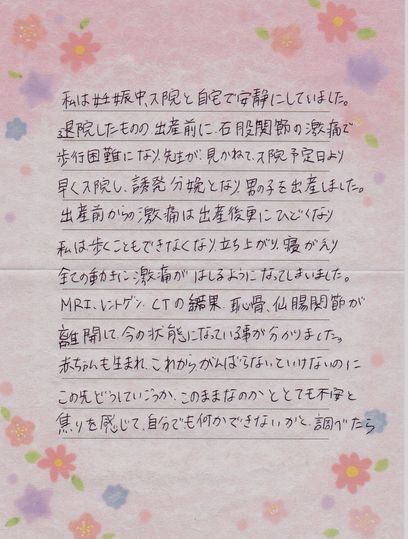 私は妊娠中、入院と自宅で安静にしていました。
退院したものの、出産前に、右股関節の激痛で
歩行困難になり、先生が、見かねて、入院予定日より
早く入院し、誘発分娩となり男の子を出産しました。
出産前からの激痛は出産後更にひどくなり
私は歩くこともできなくなり立ち上がり、寝がえり
全ての動きに激痛がはしるようになってしまいました。
MRI、レントゲン、CTの結果、恥骨、仙腸関節が
離開して、今の状態になっている事が分かりました。
赤ちゃんも生まれ、これからがんばらないといけないのに
この先どうしていこうか、このままなのかととても不安と
焦りを感じて、自分でも何かできないかと、調べたら